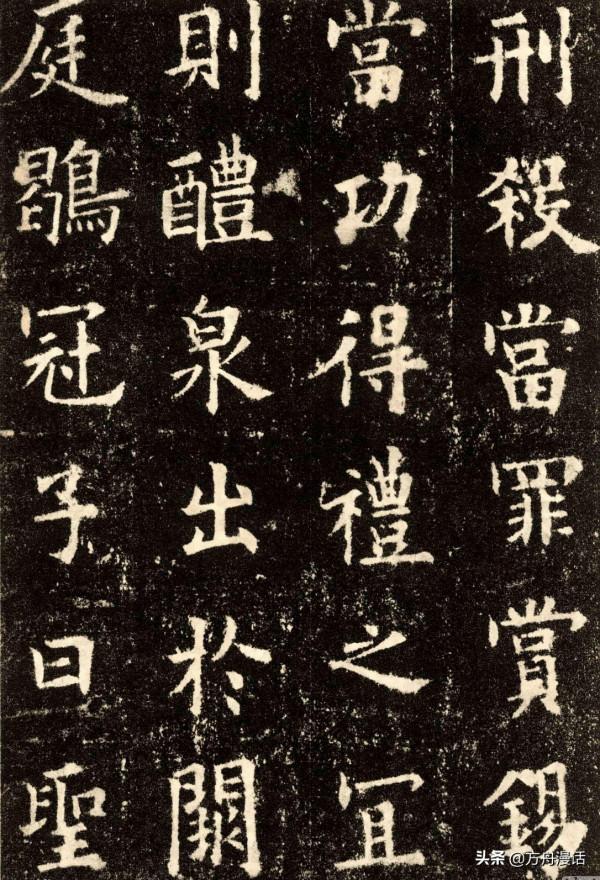 刑殺當罪賞錫
當功得禮之宜
則醴泉出於闕
庭鶡冠子曰聖
头条 @方舟漫话